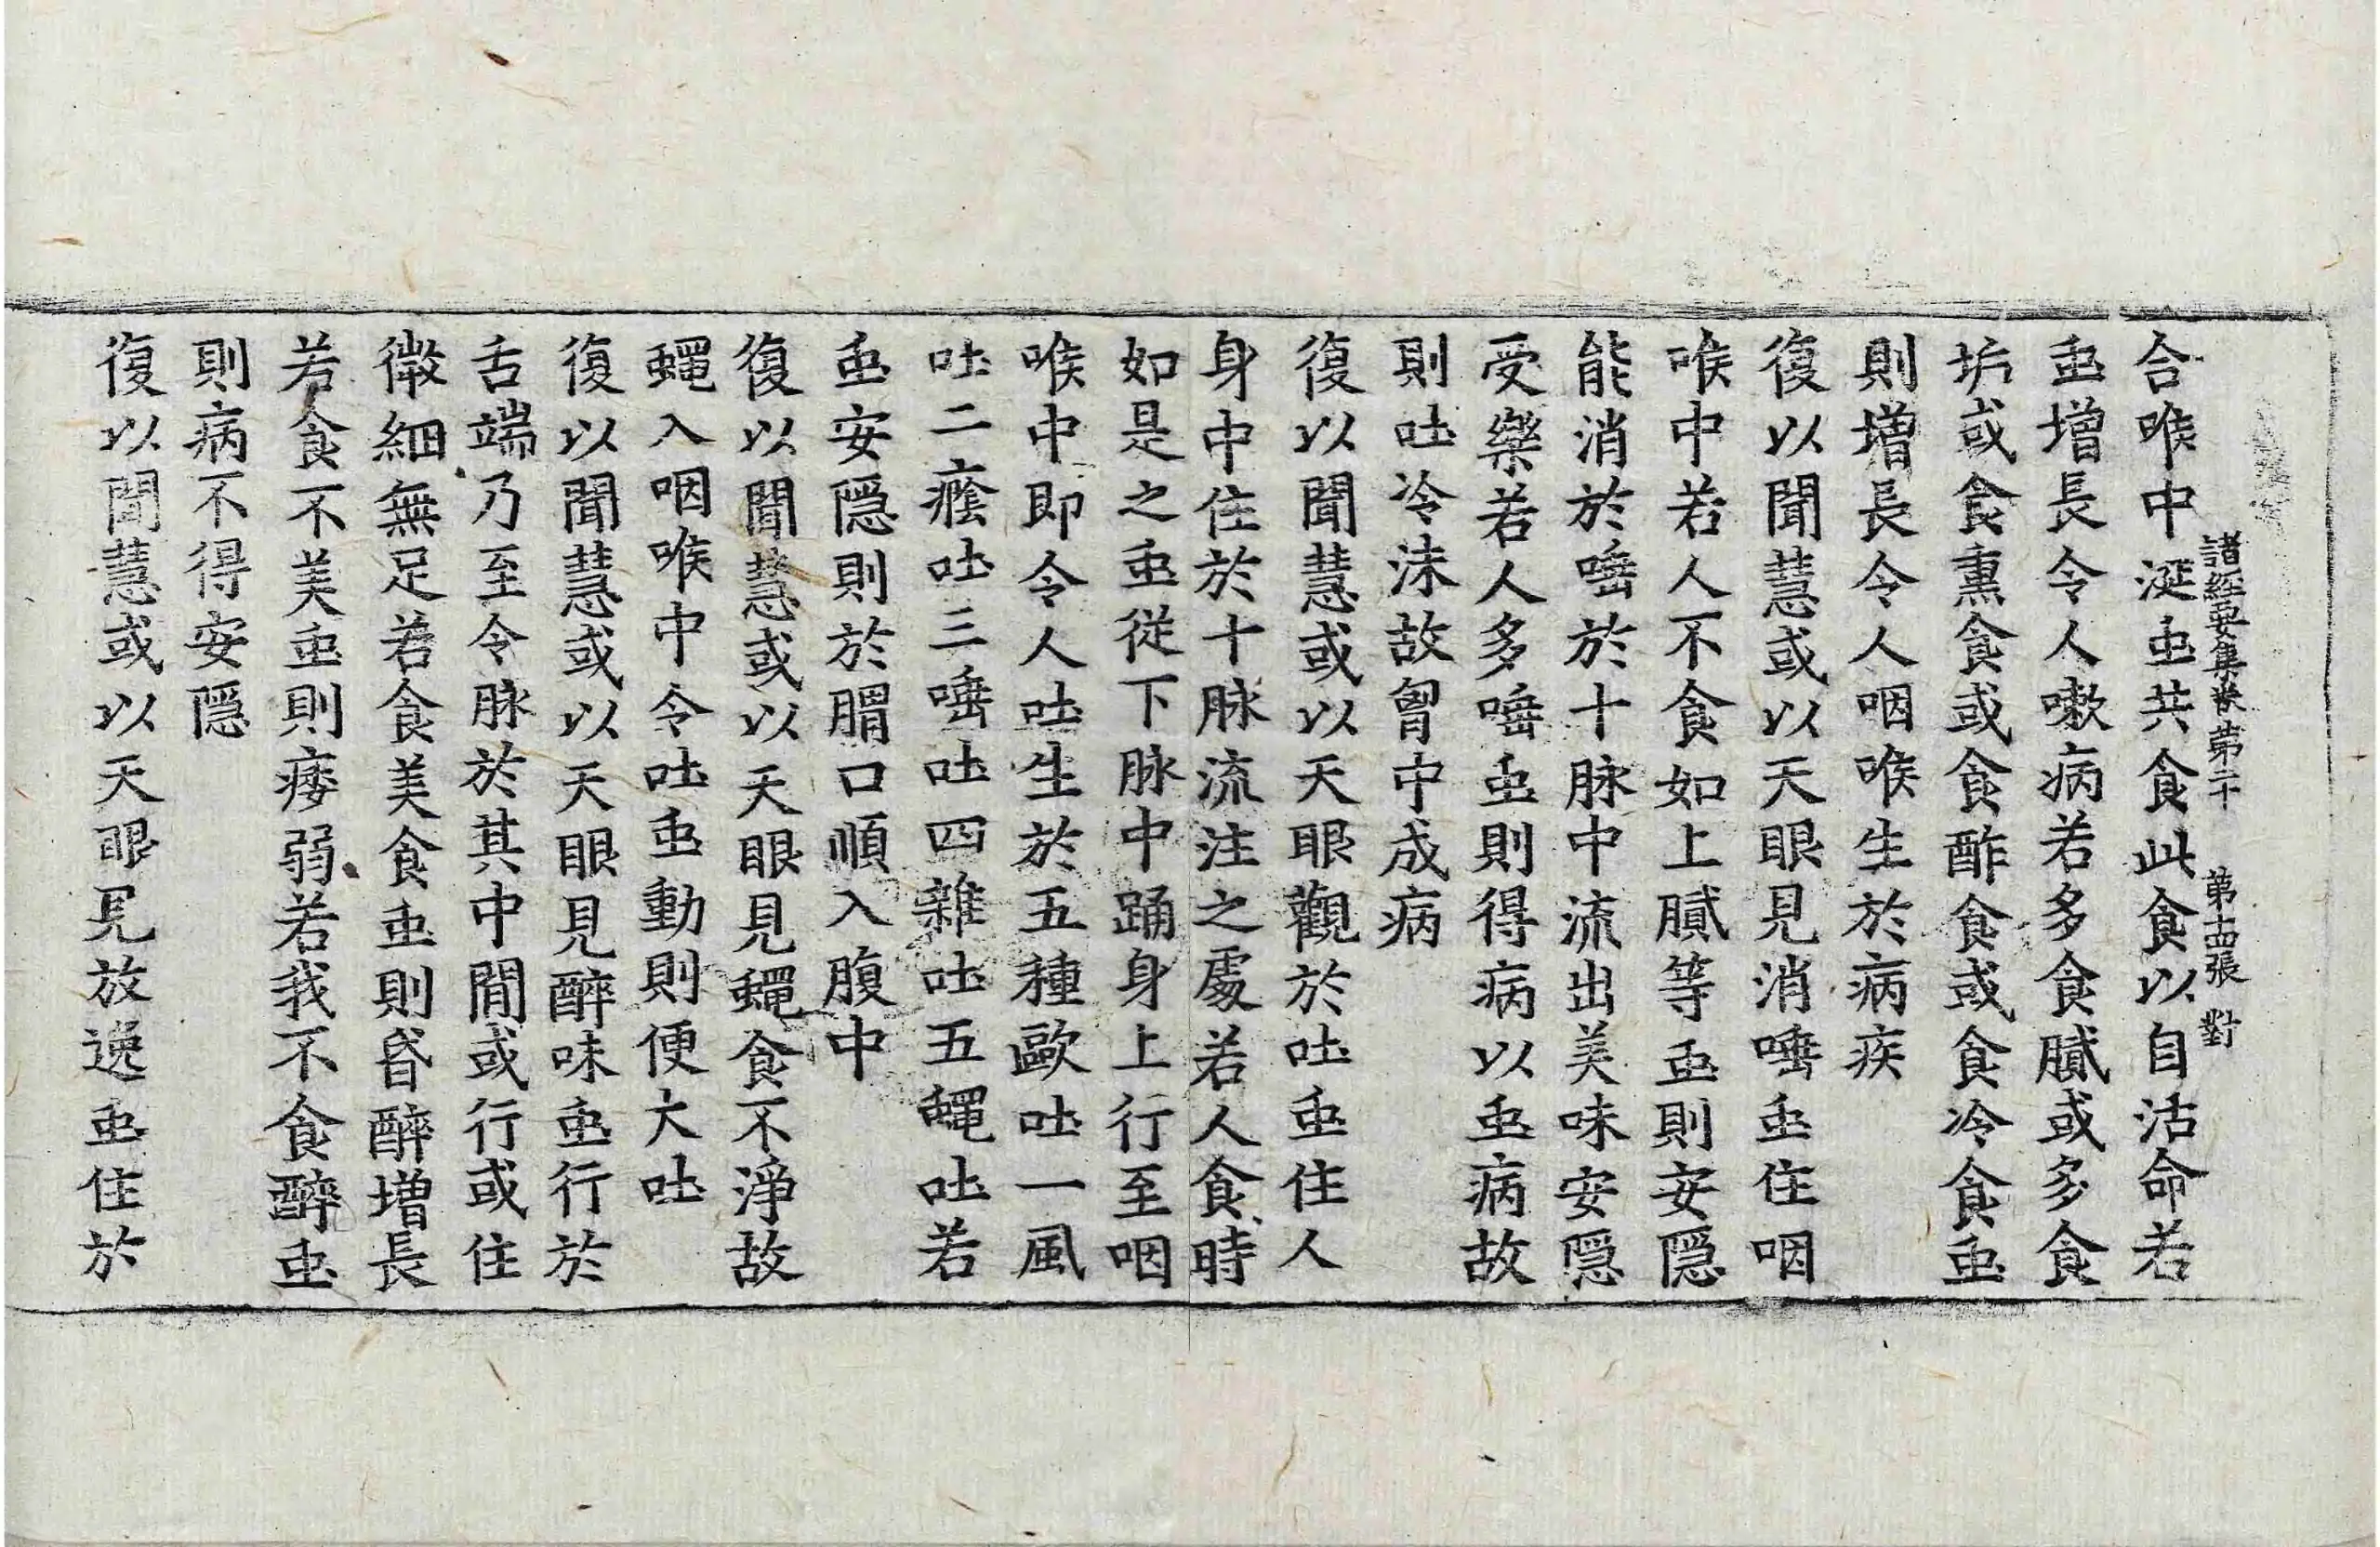 諸經要集卷第二十　第十四張　對
合喉中涎䖝共食此食以自活命若
䖝增長令人嗽病若多食膩或多食
或食熏食或食酢食或食冷食䖝
則增長令人咽喉生於病疾
復以聞慧或以天眼見消唾䖝住咽
喉中若人不食如上膩等䖝則安隱
能消於唾於十脉中流出美味安隱
受樂若人多唾䖝則得病以䖝病故
則吐冷沫故胷中成病
復以聞慧或以天眼觀於吐䖝住人
身中住於十脉流注之處若人食時
如是之䖝從下脉中踊身上行至咽
喉中即令人吐生於五種歐吐一風
吐二癊吐三唾吐四雜吐五蠅吐若
䖝安隱則於胃口順入腹中
復以聞慧或以天眼見蠅食不淨故
蠅入咽喉中令吐䖝動則便大吐
復以聞慧或以天眼見醉味䖝行於
舌端乃至令脉於其中間或行或住
微細無足若食美食䖝則昏醉增長
若食不美䖝則痿弱若我不食醉䖝
則病不得安隱
復以聞慧或以天眼見放逸䖝住於